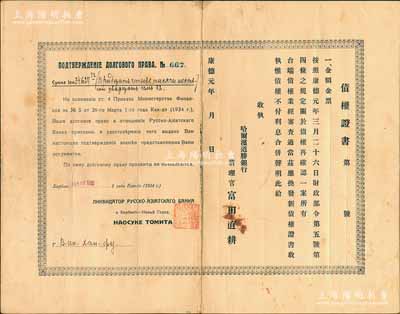 上海陽明拍賣
ПОДТВЕРЖДЕНIЕ ДОЛГОВОГО ПРАВА. № 667.
На основанiи ст. 4 Приказа Министерства Финан-
сов за № 5 от 26-го Марта 1-го года Кан-дэ (1934 г.)
Ваше долговое право в отношенiи Русско-Азiатского
Банка признано и удостоверенiем чего выдано Вам
настоящее подтвержденiе взамен представленных Вами
документов.
По сему долговому праву проценты не начисляются.
Харбин,
1 года Кан-дэ (1934 г.)
ЛИКВИДАТОР РУССКО-АЗIАТСКОГО БАНКА
в Харбине—Новый Город
НАОСУКЕ ТОМИТА
債權證書 第 號
一、金額金票
按照康德元年三月二十六日財政部令第五號第
四條之規定關於債權再確認一案所有
台端債權業經審查適當茲應換發新債權證書收
執惟債權不付利息合併聲明此給
收執
康德元年 月 日
哈爾濱道勝銀行
管理官 富田直耕